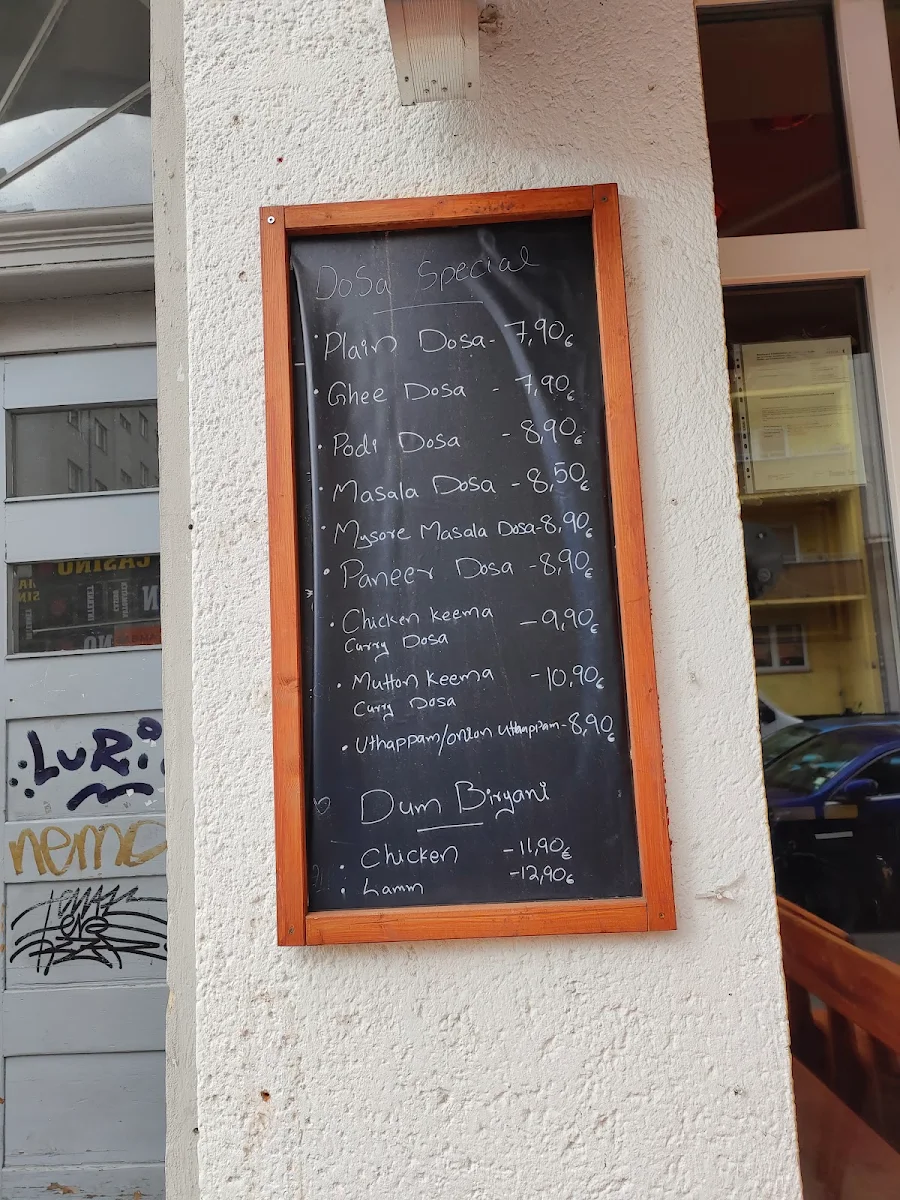 DoSa Special
• Plain Dosa - 7,90€
• Ghee Dosa - 7,90€
• Podi Dosa - 8,90€
• Masala Dosa - 8,50€
• Mysore Masala Dosa - 8,90€
• Paneer Dosa - 8,90€
• Chicken keema - 9,90€
Curry Dosa
• Mutton keema - 10,90€
Curry Dosa
• Uthappam/onion uthappam - 8,90€
Dum Biryani
• Chicken - 11,90€
• Lamm - 12,90€
CASINO
INTERNET
LURi
nemo